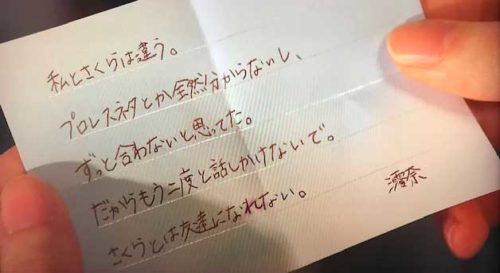 私とさくらは違う。
プロレスネタとか全然分からないし、
ずっと合わないと思ってた。
だからもう二度と話しかけないで。
さくらとは友達になれない。